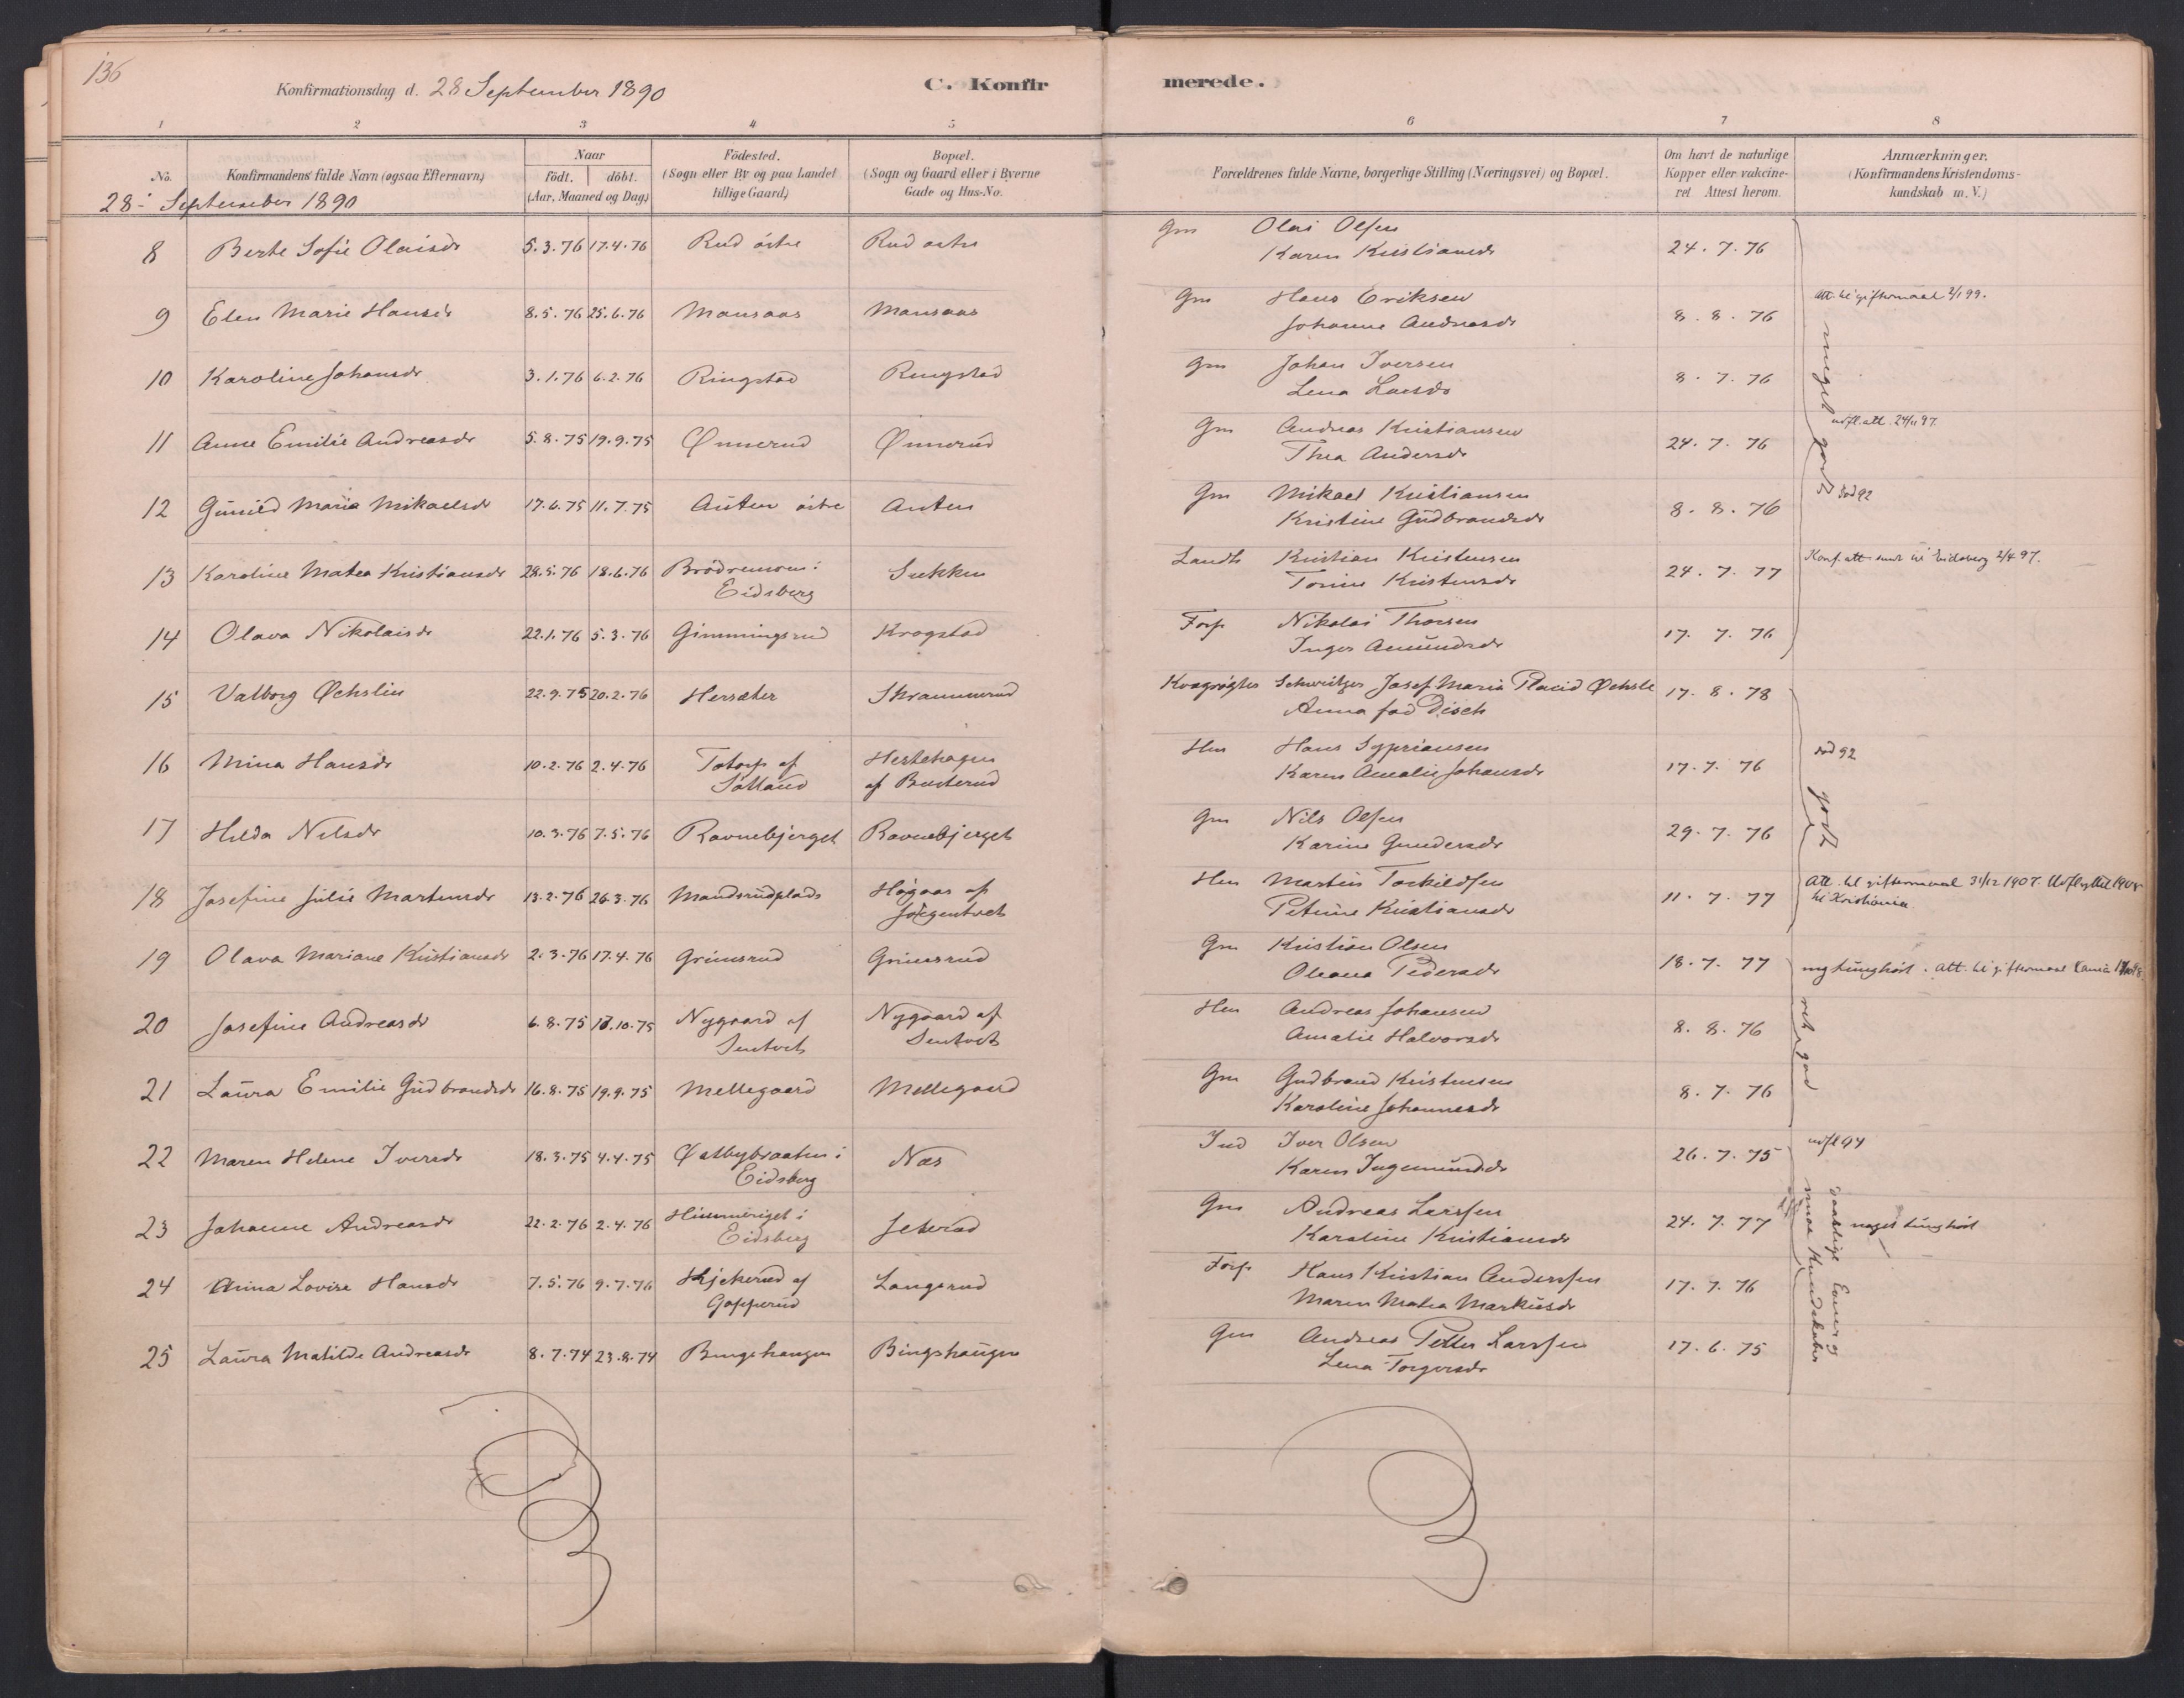 136
Konfirmationsdag d. 28 September 1890
C. Konfirmerede.
1 2 3 4 5 6 7 8
No. Konfirmandens fulde Navn (ogsaa Efternavn) Naar födt. döbt. (Aar, Maaned og Dag) Födested. (Sogn eller By og paa Landet tillige Gaard) Bopæl. (Sogn og Gaard eller i Byerne Gade og Hus-No. Forældrenes fulde Navne, borgerlige Stilling (Næringsvei) og Bopæl. Om havt de naturlige Kopper eller vakcineret Attest herom. Anmærkninger. (Konfirmandens Kristendomskundskab m. V.)
28 September 1890
8 Berte Sofie Olaisdr 5.3.76 17.4.76 Rud östre Rud östre Gm Olai Olsen 24.7.76
Karen Kristiansdr
9 Elen Marie Hansdr 8.5.76 25.6.76 Monsaas Monsaas Gm Hans Eriksen 8.8.76 Att. til giftermaal 2/1 99.
Johanne Andreasdr
10 Karoline Johansdr 3.1.76 6.2.76 Ringstad Ringstad Gm Johan Iversen 8.7.76
Lena Larsdr
meget godt
11 Anne Emilie Andreasdr 5.8.75 19.9.75 Ønnerud Ønnerud Gm Andreas Kristiansen 24.7.76 udfl. att. 24/11 97
Thea Andersdr
12 Gunild Maria Mikaelsdr 17.6.75 11.7.75 Auten östre Auten Gm Mikael Kristiansen 8.8.76 död 92
Kristine Gudbrandsdr
13 Karoline Matea Kristiansdr 28.5.76 18.6.76 Brödremoen i Eidsberg Sukken Landh Kristian Kristensen 24.7.77 Konf. att. sendt til Eidsberg 2/4 97.
Torine Kristensdr
14 Olava Nikolaisdr 22.1.76 5.3.76 Gimmingsrud Krogstad Forp Nikolai Thorsen 17.7.76
Inger Amundsdr
15 Valborg Øchslin 22.9.75 20.2.76 Hersæter Skrammerud Kvægrögter Schweitzer Josef Maria Placid Øchsle 17.8.78
Anna fød Disch
16 Mina Hansdr 10.2.76 2.4.76 Totorp af Sölland Hestehagen af Busterud Hm Hans Sypriansen 17.7.76 död 92
Karen Amalie Johansdr
godt
17 Hilda Nilsdr 10.3.76 7.5.76 Ravnebjerget Ravnebjerget Gm Nils Olsen 29.7.76
Karine Gundersdr
18 Josefine Julie Martinsdr 13.2.76 26.3.76 Mandsrudplads Högaas af Hm Martin Torkildsen 11.7.77 Att. til giftermaal 31/12 1907. Udflyttet 1908 til Kristiania
Petrine Kristiansdr
19 Olava Mariane Kristiansdr 2.3.76 17.4.76 Grimsrud Grimsrud Gm Kristian Olsen 18.7.77 mg tunghört. Att. til giftermaal
Oleana Pedersdr
20 Josefine Andreasdr 6.8.75 17.10.75 Nygaard af Sentvet Nygaard af Sentvet Hm Andreas Johansen 8.8.76
Amalie Halvorsdr
ret god
21 Laura Emilie Gudbrandsdr 16.8.75 19.9.75 Mellegaard Mellegaard Gm Gudbrand Kristensen 8.7.76
Karoline Johannesdr
22 Maren Helene Iversdr 18.3.75 4.4.75 Østbybraaten i Eidsberg Næs Ind Iver Olsen 26.7.75 udfl 94
Karen Ingemundsdr
23 Johanne Andreasdr 22.2.76 2.4.76 Himmeriget i Eidsberg Jeterud Gm Andreas Larssen 24.7.77 noget tunghört
Karoline Kristiansdr
daarlige Evner og smaa Kundskaber
24 Anna Lovise Hansdr 7.5.76 9.7.76 Kjekerud af Gopperud Langsrud Forp Hans Kristian Anderssen 17.7.76
Maren Matea Markusdr
25 Laura Matilde Andreasdr 8.7.74 23.8.74 Bingshaugen Bingshaugen Gm Andreas Petter Larssen 17.6.75
Lena Torgersdr